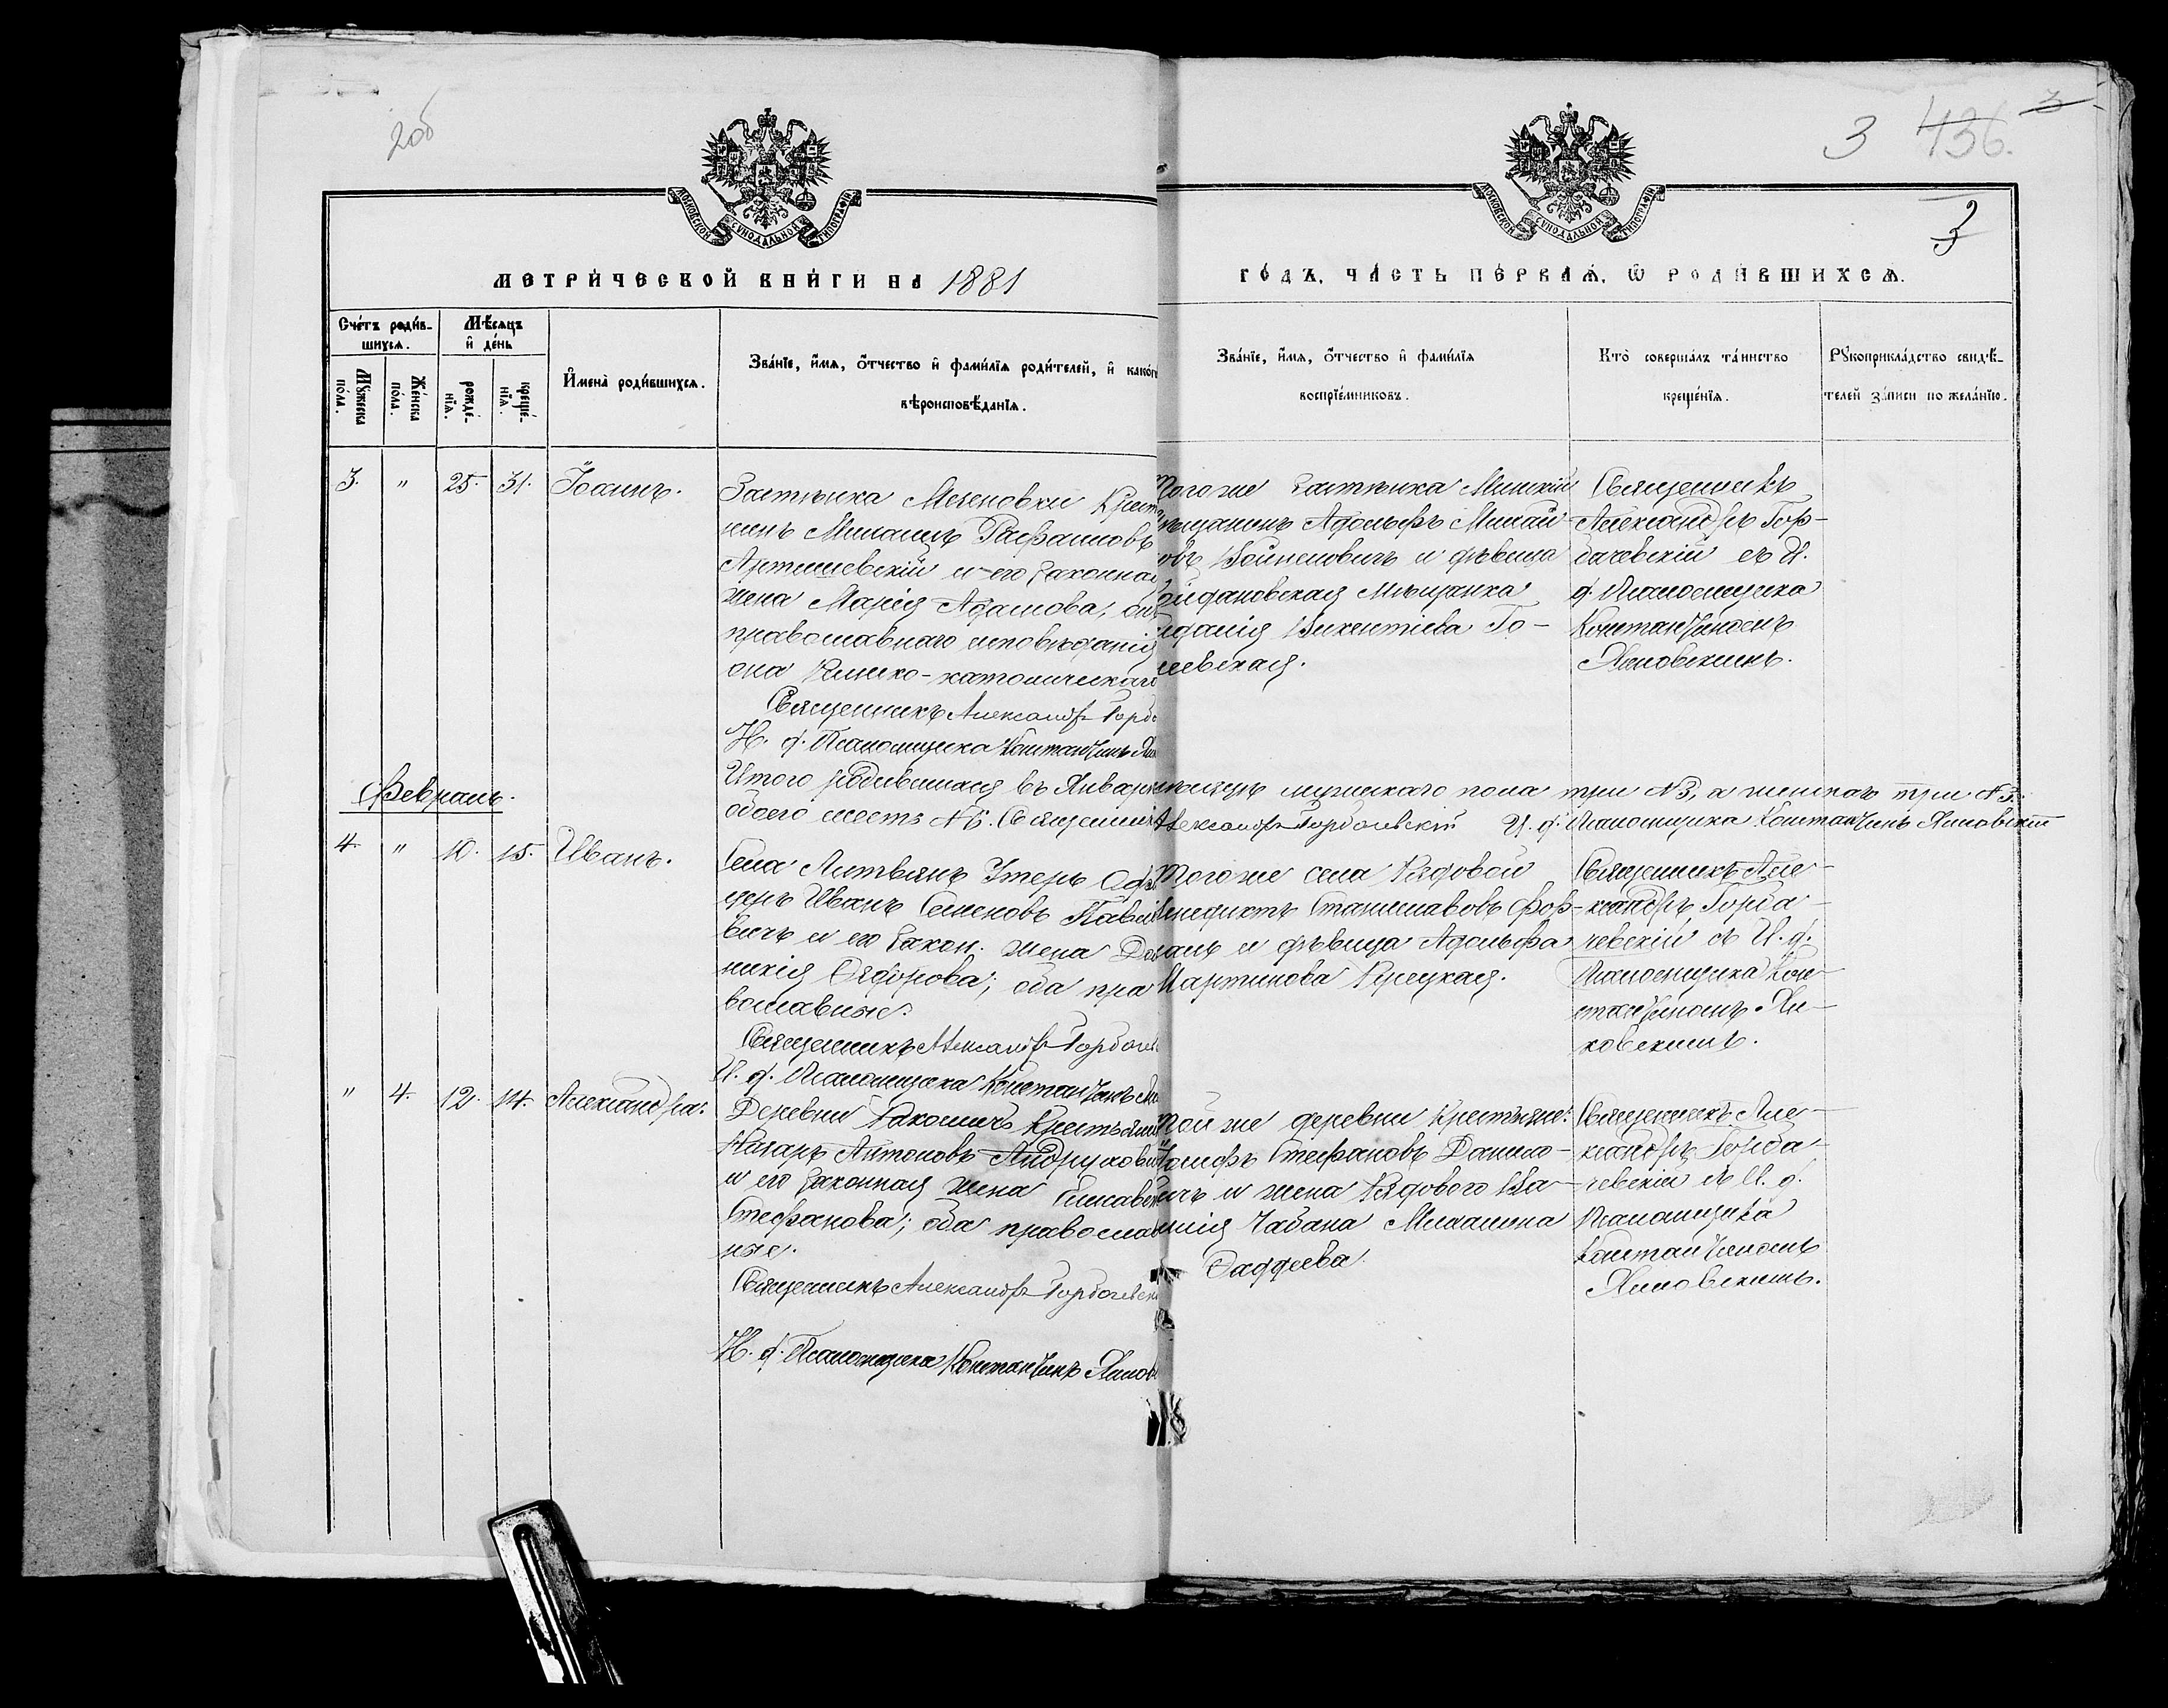 2об
3 436. 3
МОСКОВСКОЙ СѴНОДАЛЬНОЙ ТИПОГРАФІИ
МОСКОВСКОЙ СѴНОДАЛЬНОЙ ТИПОГРАФІИ
3
МЕТРИ́ЧЕСКОЙ КНИ́ГИ НА 1881
ГО́ДЪ, ЧА́СТЬ ПЕ́РВАѦ, Ѿ РОДИ́ВШИХСѦ.
Сче́тъ роди́в-
шихсѧ.
Мѣ́сѧцъ
и҆ де́нь
Мꙋ́жеска
по́ла.
Же́нска
по́ла.
рожде́-
нїѧ.
креще́-
нїѧ.
И҆мена̀ роди́вшихсѧ.
Зва́нїе, и҆́мѧ, ѻ҆́тчество и҆ фами́лїѧ роди́телей, и҆ како́гѡ
вѣроисповѣ́данїѧ.
Зва́нїе, и҆́мѧ, ѻ҆́тчество и҆ фами́лїѧ
воспрїе́мниковъ.
Кто̀ соверша́лъ та́инство
креще́нїѧ.
Рꙋкоприкла́дство свидѣ́-
телей за́писи по жела́нїю.
3. " 25. 31. Іоаннъ.
Застѣнка Мезеновки Крест
нинъ Михаилъ
и его законная
жена Марія Адамова, онъ
православнаго исповѣданія
она Римско-католическаго
Священникъ Александръ Горба
И. д. Псаломщика Константинъ Яно
Тогоже застѣнка Минскій
мѣщанинъ Адольфъ Михай-
овъ Войнеловичъ и дѣвица
ойдановская мѣщанка
Викентіева Го-
левская.
Священникъ
Александръ Гор-
бачевскій съ И.
д. Псаломщика
Константиномъ
Яновскимъ.
Итого родившихся въ Январѣ мѣсяцѣ мужескаго пола три №3, а женскаго три №3.
обоего шесть №6. Священникъ Александръ Горбачевскій И. д. Псаломщика Константинъ Яновскій
Февраль.
4. " 10. 15. Иванъ.
Села Литвянъ Унтеръ Офи
церъ Иванъ Семеновъ
вичъ и его закон. жена До
никія Ѳедорова; оба пра
вославные.
Священникъ Александръ Горбачев
И. д. Псаломщика Константинъ Яно
Тогоже села Рядовой
Бенедиктъ Станиславовъ
и дѣвица Адольфа
Мартинова Рѣцкая.
Священникъ Але-
ксандръ Горба-
чевскій съ И. д.
Псаломщика Кон-
стантиномъ Ян-
ковскимъ.
" 4. 12. 14. Александра.
Деревни Ракошичъ Крестьянин
Назаръ Антоновъ Андруковичъ
и его законная жена Елисавета
Стефанова; оба православ
ные.
Священникъ Александръ Горбачевск
И. д. Псаломщика Константинъ Яновс
Той же деревни Крестьяне:
Іосифъ Стефановъ Данило-
вичъ и жена Рядового Ва-
силія Чабана Михалина
Фаддеева.
Священникъ Але-
ксандръ Горба-
чевскій съ И. д.
Псаломщика
Константиномъ
Яновскимъ.